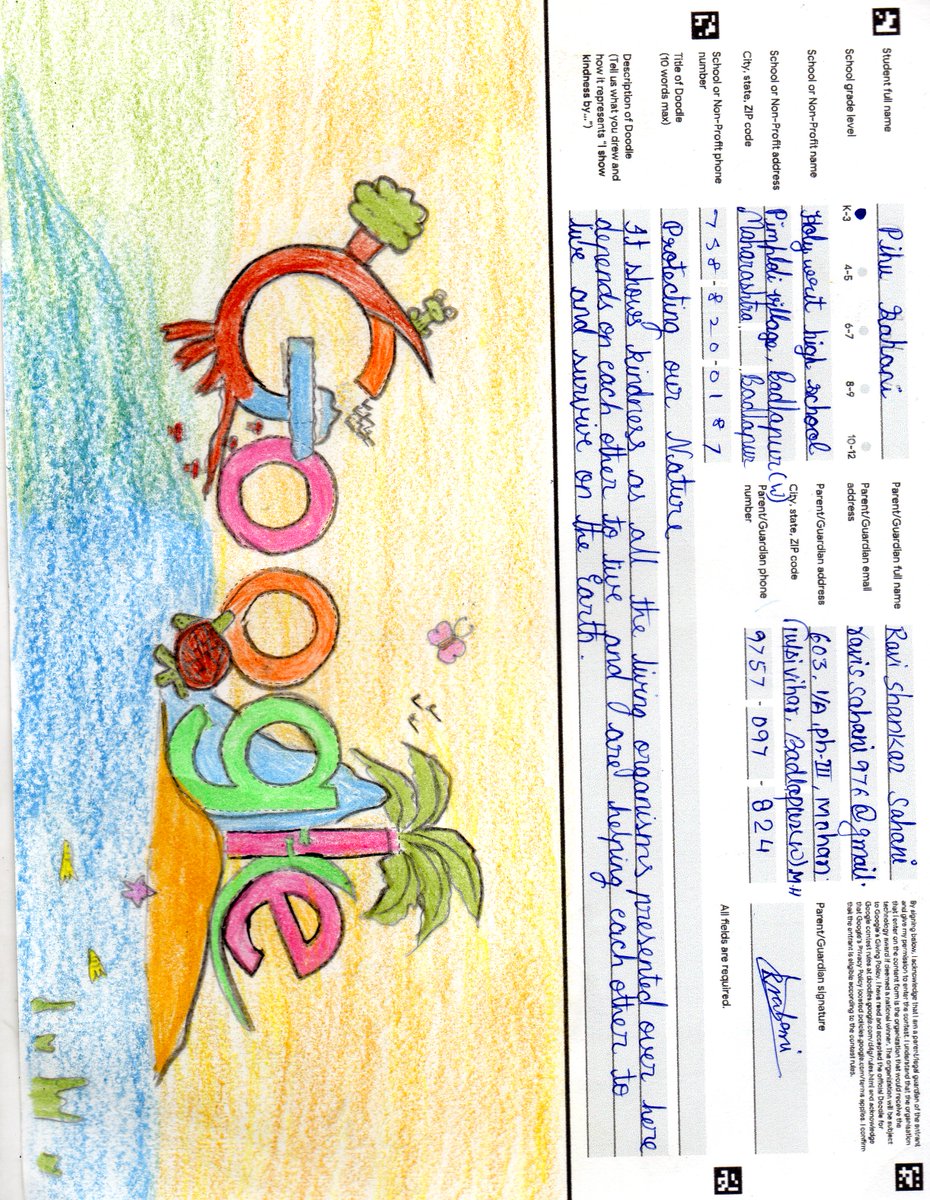 Student full name
Pihu Sahani
School grade level
K-3 4-5 6-7 8-9 10-12
School or Non-Profit name
Holy writ high school
School or Non-Profit address
City, state, ZIP code
Pimploli village, Badlapur (W)
Maharashtra, Badlapur
School or Non-Profit phone number
758-820-0187
Parent/Guardian full name
Ravi Shankar Sahani
Parent/Guardian email address
ravissahani976@gmail.
Parent/Guardian address
City, state, ZIP code
603, 1/A, ph-III, Mohan
Tulsi vihar, Badlapur(W) M.H
Parent/Guardian phone number
9757-097-824
By signing below, I acknowledge that I am a parent/legal guardian of the entrant
and give my permission to enter the contest. I understand that the organization
that I enter on the content form is the organization that would receive the
technology award if deemed a national winner. The organization will be subject
to Google's Giving Policy. I have read and accepted the official Doodle for
Google contest rules at doodles.google.com/d4g/rules.html and acknowledge
that Google's Privacy Policy located policies.google.com/terms applies. I confirm
that the entrant is eligible according to the contest rules.
Parent/Guardian signature
All fields are required.
Title of Doodle
(10 words max)
Protecting our Nature
Description of Doodle
(Tell us what you drew and
how it represents "I show
kindness by...")
It shows kindness as all the living organisms presented over here
depends on each other to live and are helping each other to
live and survive on the Earth.
Google